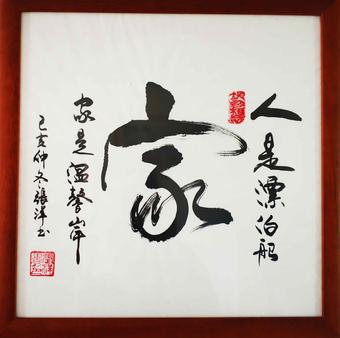 人是漂泊船
家
家是温馨岸
己亥仲冬張洋书